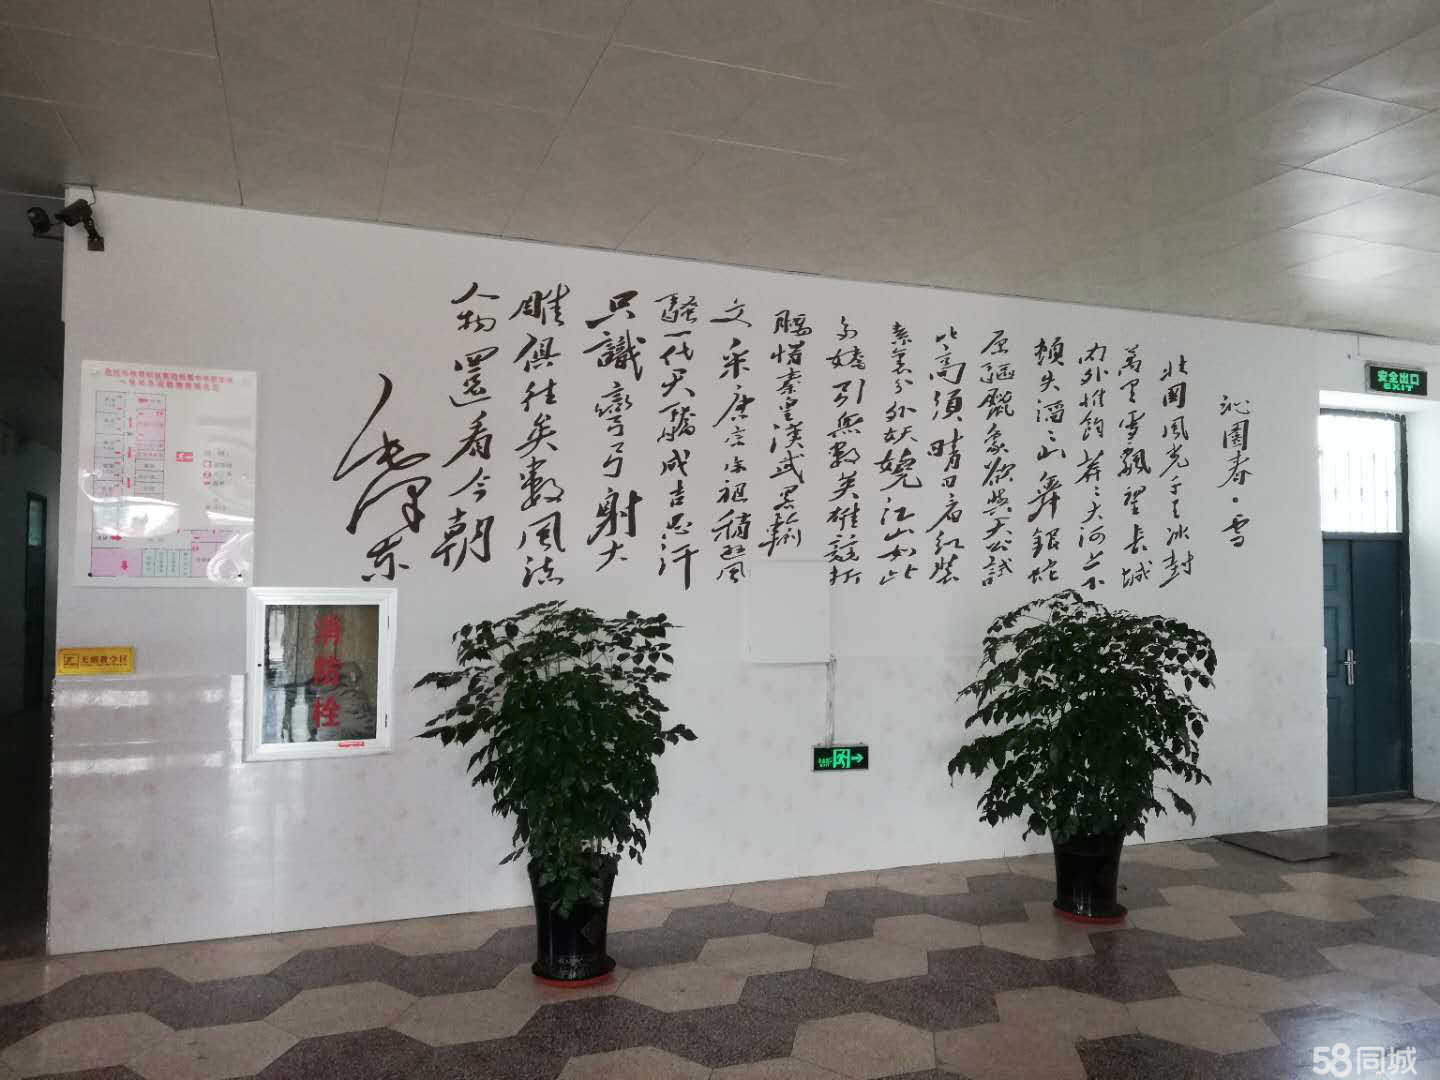 沁園春·雪
北國風光千里冰封
萬里雪飄望長城
内外惟餘莽々大河上下
頓失滔々山舞銀蛇
原驅臘象欲與天公試
比高須晴日看紅裝
素裹分外妖嬈江山如此
多嬌引無數英雄競折
腰惜秦皇漢武略輸
文采唐宗宋祖稍遜風
騷一代天驕成吉思汗
只識彎弓射大
雕俱往矣數風流
人物還看今朝
毛澤東
安全出口
EXIT
消防栓
无烟教学区
58同城